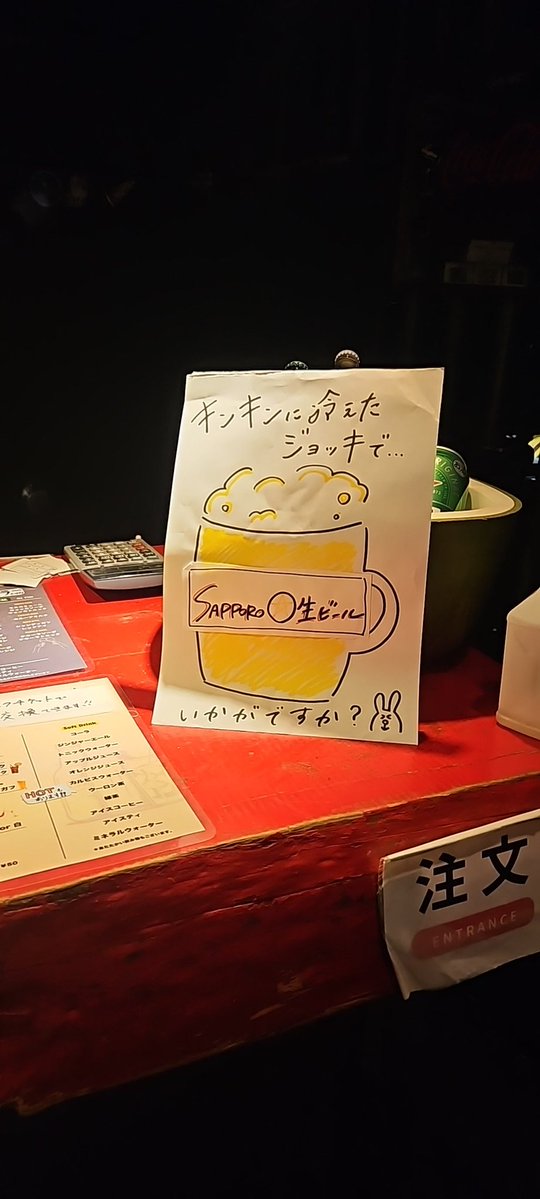 キンキンに冷えた
ジョッキで...
SAPPORO 生ビール
いかがですか?
交換できます!!
Soft Drink
コーラ
ジンジャーエール
トニックウォーター
アップルジュース
オレンジジュース
カルピスウォーター
ウーロン茶
緑茶
アイスコーヒー
アイスティ
ミネラルウォーター
HOT
あります!!
or 白
¥50
注文
ENTRANCE